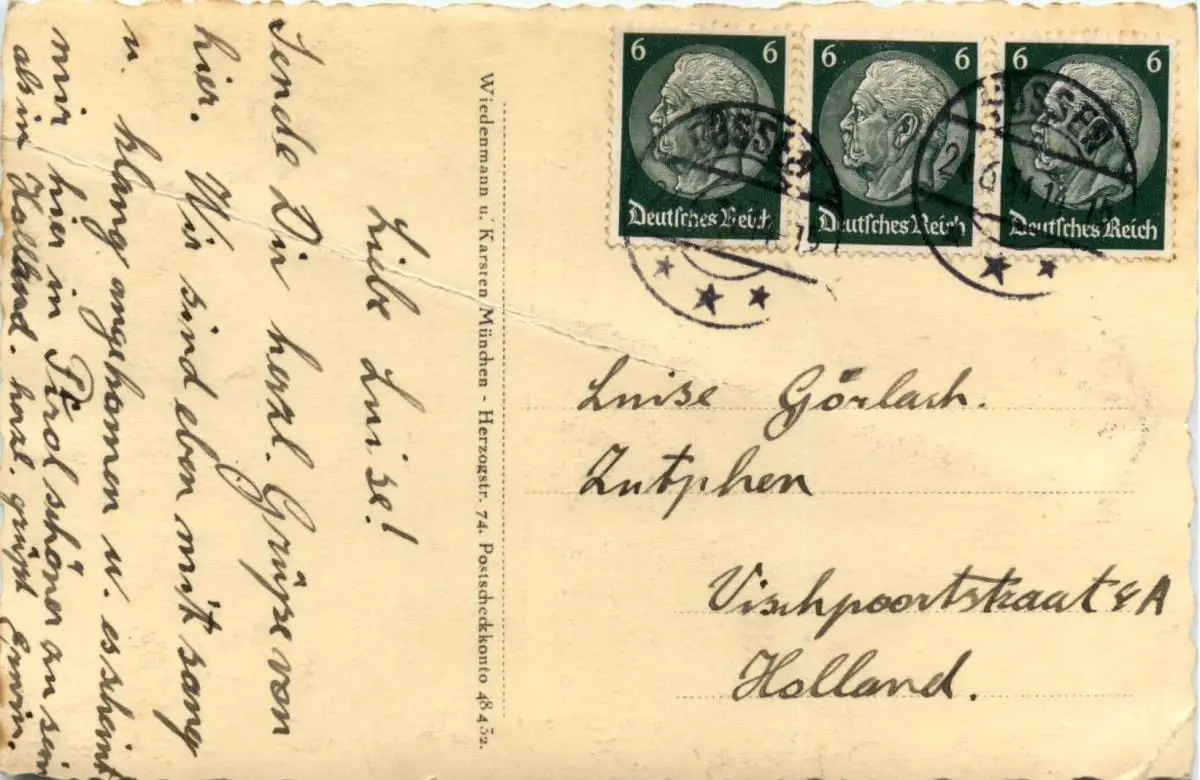 Liebe Luise!
Sende Dir herzl. Grüße von
hier. Wir sind eben mit sang
u. klang angekomen u. es scheint
mir hier in Tirol schöner zu sein
als in Holland. herzl. grüßt Erwin.
Wiedenmann u. Karsten München - Herzogstr. 74. Postscheckkonto 48452.
6 6
Deutsches Reich
6 6
Deutsches Reich
6 6
Deutsches Reich
FÜSSEN
FÜSSEN
Luise Görlach.
Zutphen
Vischpoortstraat 8A
Holland.